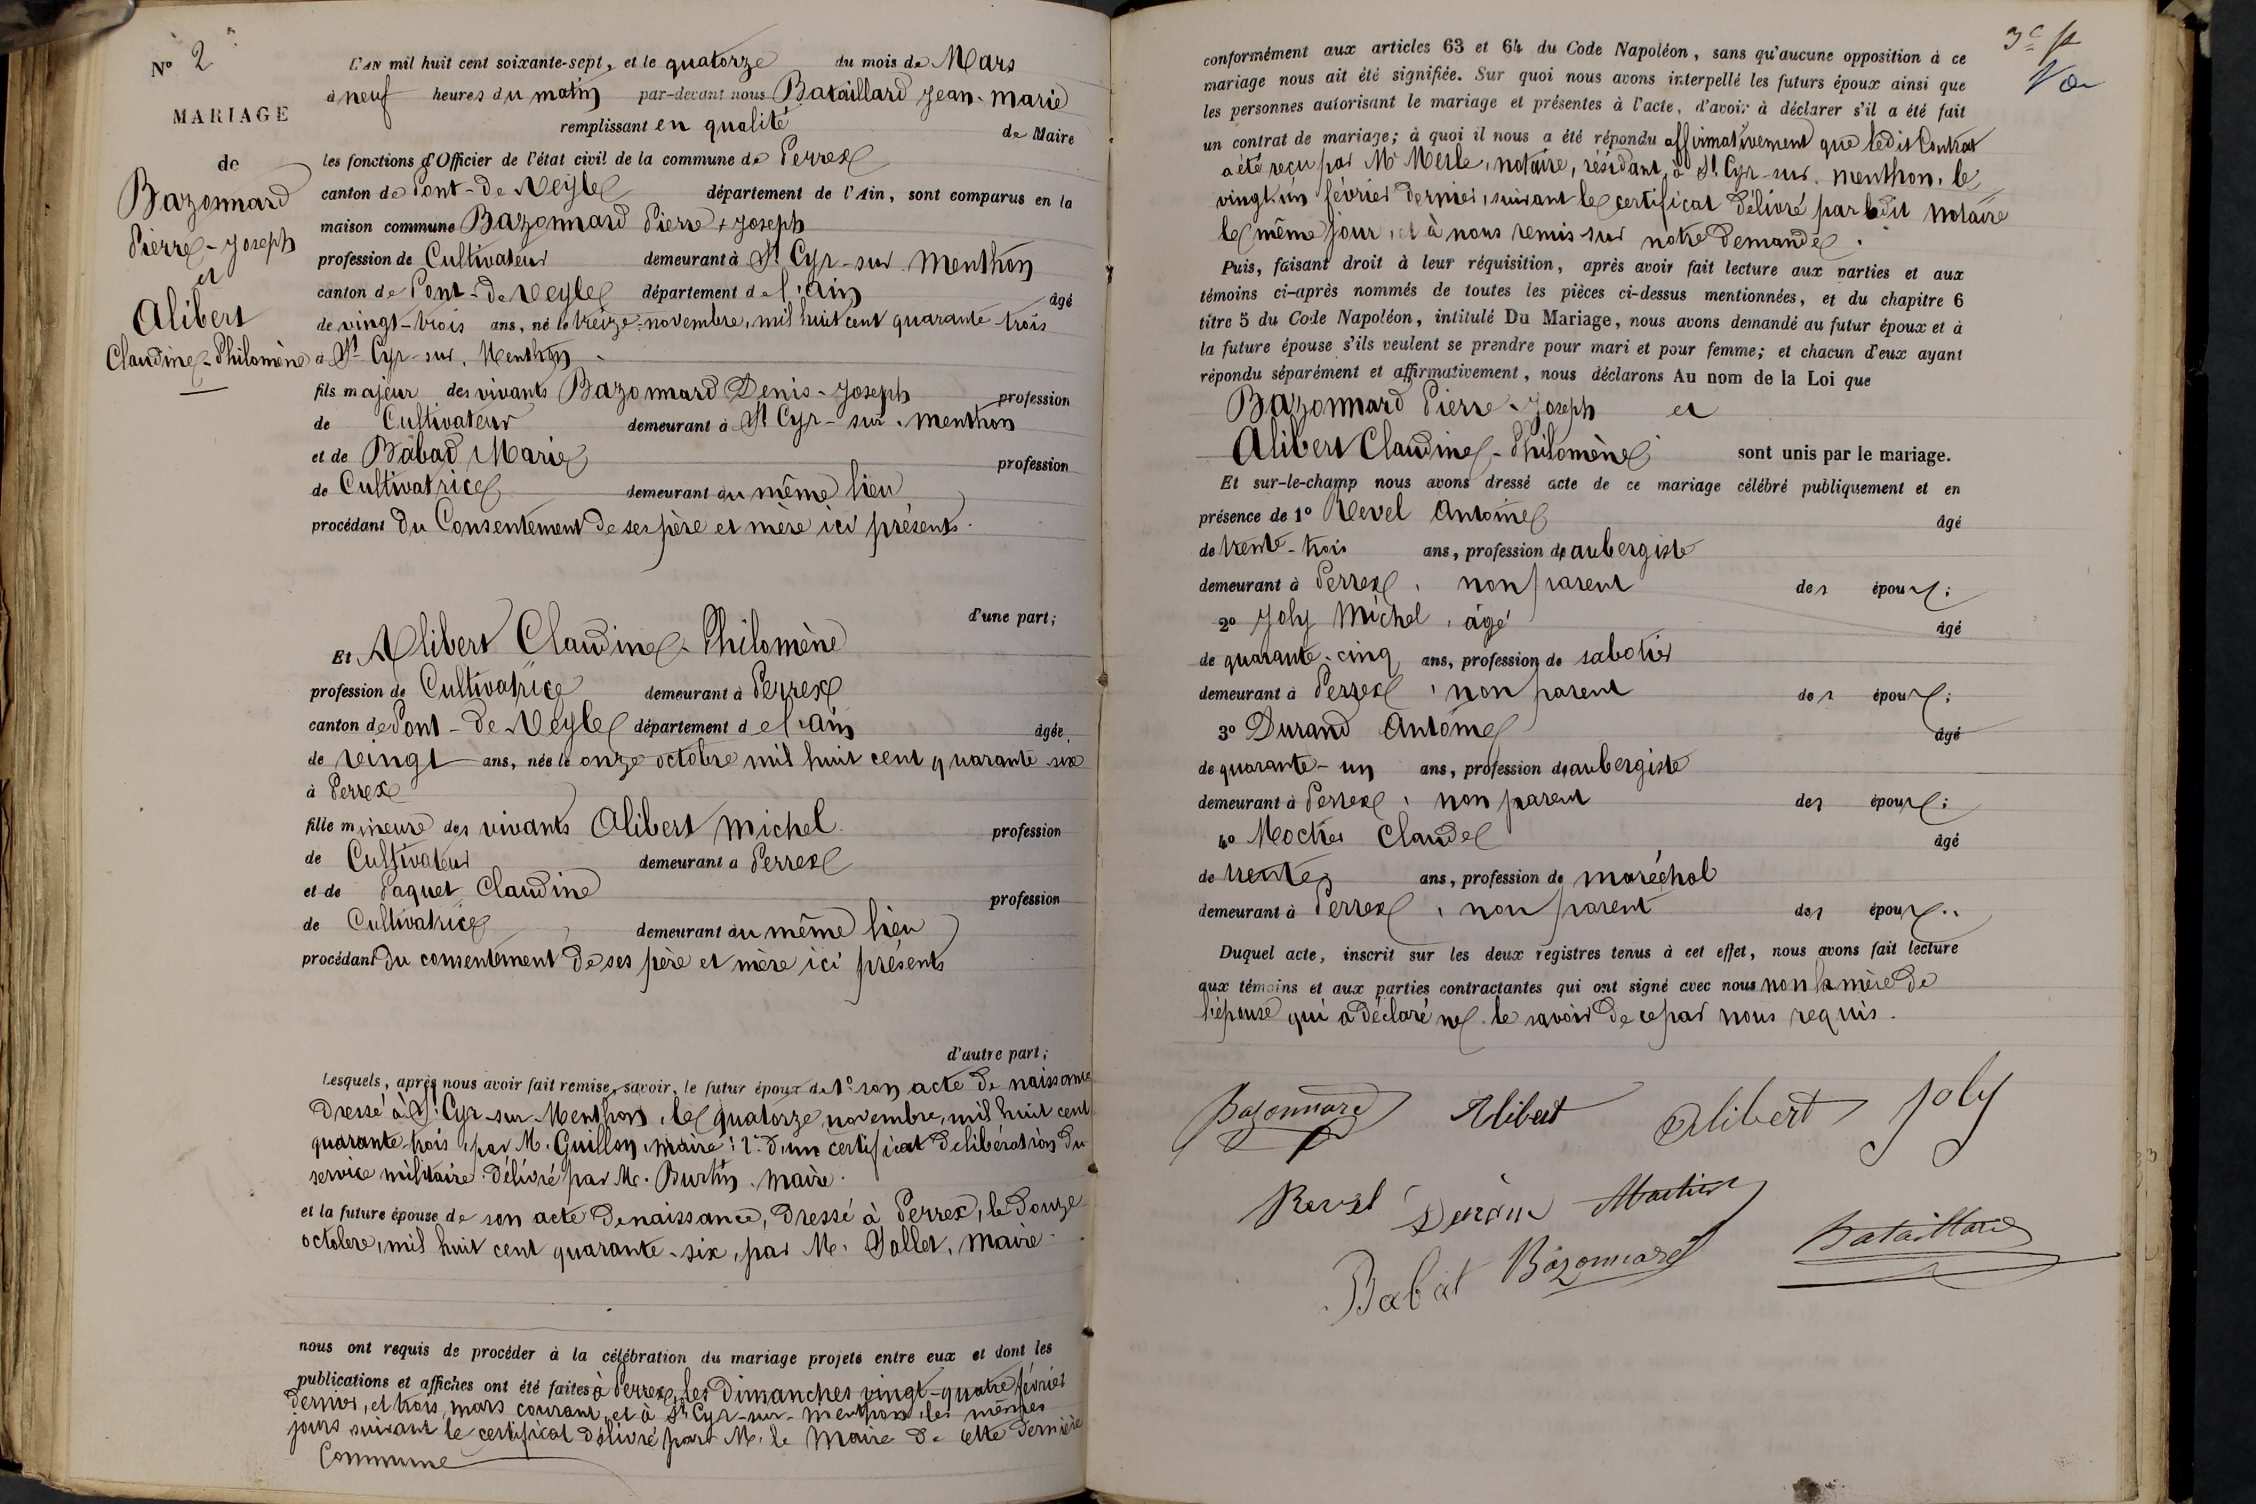 N° 2
MARIAGE
de
Bazonnard
Pierre-Joseph
et
Alibert
Claudine-Philomène
L'AN mil huit cent soixante-sept, et le quatorze du mois de Mars
à neuf heures du matin par-devant nous Bataillard Jean-Marie
remplissant en qualité de Maire
les fonctions d'Officier de l'état civil de la commune de Perrex
canton de Pont-de-Veyle département de l'Ain, sont comparus en la
maison commune Bazonnard Pierre + Joseph
profession de Cultivateur demeurant à St Cyr-sur-Menthon
canton de Pont-de-Veyle département de l'ain âgé
de vingt-trois ans, né le treize novembre, mil huit cent quarante-trois
à St Cyr-sur-Menthon
fils majeur des vivants Bazonnard Denis-Joseph profession
de Cultivateur demeurant à St Cyr-sur-menthon
et de Babad Marie profession
de Cultivatrice demeurant au même lieu
procédant du Consentement de ses père et mère ici présents.
d'une part;
Et Alibert Claudine-Philomène
profession de Cultivatrice demeurant à Perrex
canton de Pont-de-Veyle département de l'ain âgée
de vingt ans, née le onze octobre mil huit cent quarante-six
à Perrex
fille mineure des vivants Alibert Michel profession
de Cultivateur demeurant à Perrex
et de Paquet Claudine profession
de Cultivatrice demeurant au même lieu
procédant du consentement de ses père et mère ici présents
d'autre part;
Lesquels, après nous avoir fait remise, savoir, le futur époux de 1° son acte de naissance
dressé à St Cyr-sur-Menthon, le quatorze novembre, mil huit cent
quarante-trois, par M. Guillon, maire; 2° d'un certificat de libération du
service militaire délivré par M. Burtin, maire.
et la future épouse de son acte de naissance, dressé à Perrex, le douze
octobre, mil huit cent quarante-six, par M. Pallet, maire.
nous ont requis de procéder à la célébration du mariage projeté entre eux et dont les
publications et affiches ont été faites à Perrex, les dimanches vingt-quatre février
dernier, et trois mars courant, et à St Cyr-sur-menthon les mêmes
jours suivant le certificat délivré par M. le Maire de cette dernière
Commune
conformément aux articles 63 et 64 du Code Napoléon, sans qu'aucune opposition à ce
mariage nous ait été signifiée. Sur quoi nous avons interpellé les futurs époux ainsi que
les personnes autorisant le mariage et présentes à l'acte, d'avoir à déclarer s'il a été fait
un contrat de mariage; à quoi il nous a été répondu affirmativement que ledit Contrat
a été reçu par Me Merle, notaire, résidant à St Cyr-sur-menthon, le
vingt-un février dernier, suivant le certificat délivré par ledit notaire
le même jour, et à nous remis sur notre demande.
Puis, faisant droit à leur réquisition, après avoir fait lecture aux parties et aux
témoins ci-après nommés de toutes les pièces ci-dessus mentionnées, et du chapitre 6
titre 5 du Code Napoléon, intitulé Du Mariage, nous avons demandé au futur époux et à
la future épouse s'ils veulent se prendre pour mari et pour femme; et chacun d'eux ayant
répondu séparément et affirmativement, nous déclarons Au nom de la Loi que
Bazonnard Pierre-Joseph et
Alibert Claudine-Philomène sont unis par le mariage.
Et sur-le-champ nous avons dressé acte de ce mariage célébré publiquement et en
présence de 1° Revel Antoine âgé
de trente-trois ans, profession de aubergiste
demeurant à Perrex, non parent des époux;
2° Joly Michel, âgé âgé
de quarante-cinq ans, profession de sabotier
demeurant à Perrex, non parent des époux;
3° Durand Antoine âgé
de quarante-un ans, profession de aubergiste
demeurant à Perrex, non parent des époux;
4° Claude âgé
de trente ans, profession de maréchal
demeurant à Perrex, non parent des époux.
Duquel acte, inscrit sur les deux registres tenus à cet effet, nous avons fait lecture
aux témoins et aux parties contractantes qui ont signé avec nous non la mère de
l'épouse qui a déclaré ne le savoir de ce par nous requis.
Bazonnard Alibert Alibert Joly
Revel Durand
Babat Bazonnard Bataillard